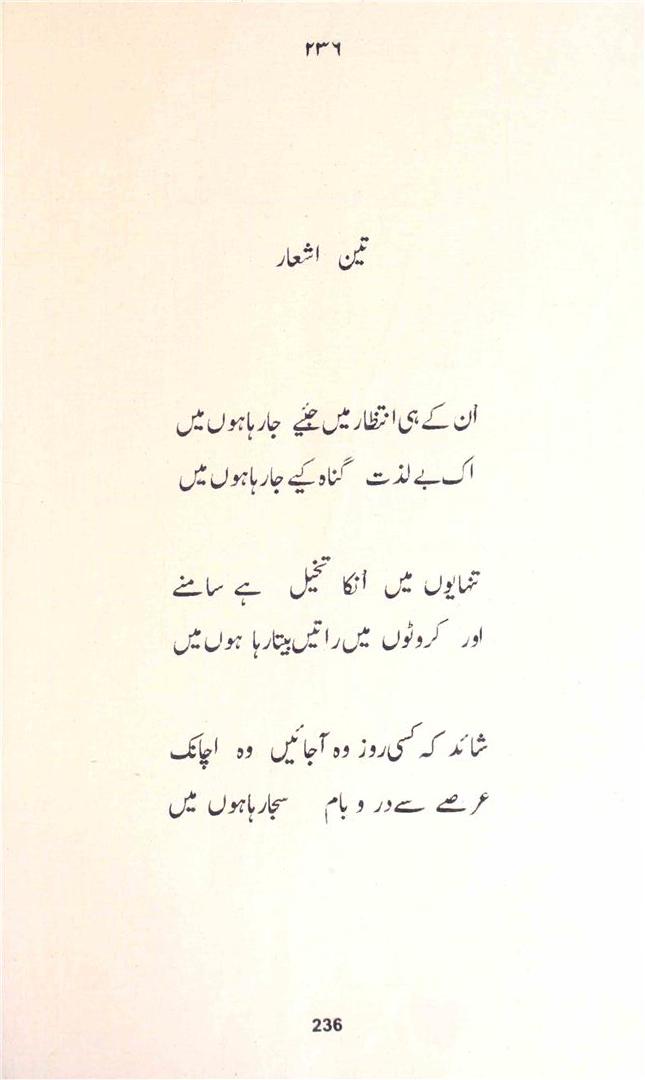 ۲۳۶
تین اشعار
اُن کے ہی انتظار میں جئیے جا رہا ہوں میں
اک بے لذت گناہ کیے جا رہا ہوں میں
تنہایوں میں اُنکا تخیل ہے سامنے
اور کروٹوں میں راتیں بیتا رہا ہوں میں
شائد کہ کسی روز وہ آ جائیں وہ اچانک
عرصے سے در و بام سجا رہا ہوں میں
236